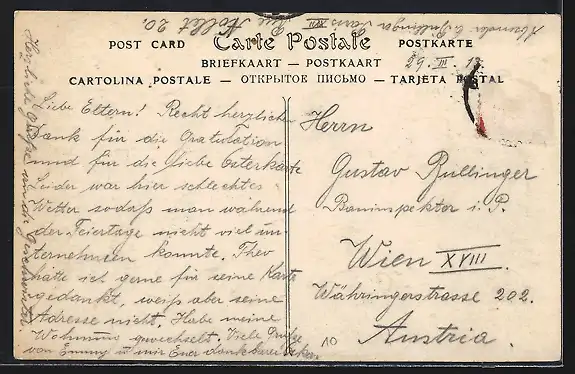 Absender O. Bullinger Paris XVII
Rue Nollet 20.
POST CARD Carte Postale POSTKARTE
BRIEFKAART — POSTKAART
CARTOLINA POSTALE — ОТКРЫТОЕ ПИСЬМО — TARJETA POSTAL
29. III. 13
Liebe Eltern! Recht herzlichen
Dank für die Gratulation
und für die liebe Osterkarte
Leider war hier schlechtes
Wetter sodaß man während
der Feiertage nicht viel un-
ternehmen konnte. Theo
hätte ich gerne für seine Karte
gedankt, weiß aber seine
Adresse nicht. Habe meine
Wohnung gewechselt. Viele Grüße
von Emmy u mir Euer dankbarer Oskar
Herrn
Gustav Bullinger
Bauinspektor i. P.
Wien XVIII.
Währingerstrasse 202.
Austria.
10
Herzliche Grüße